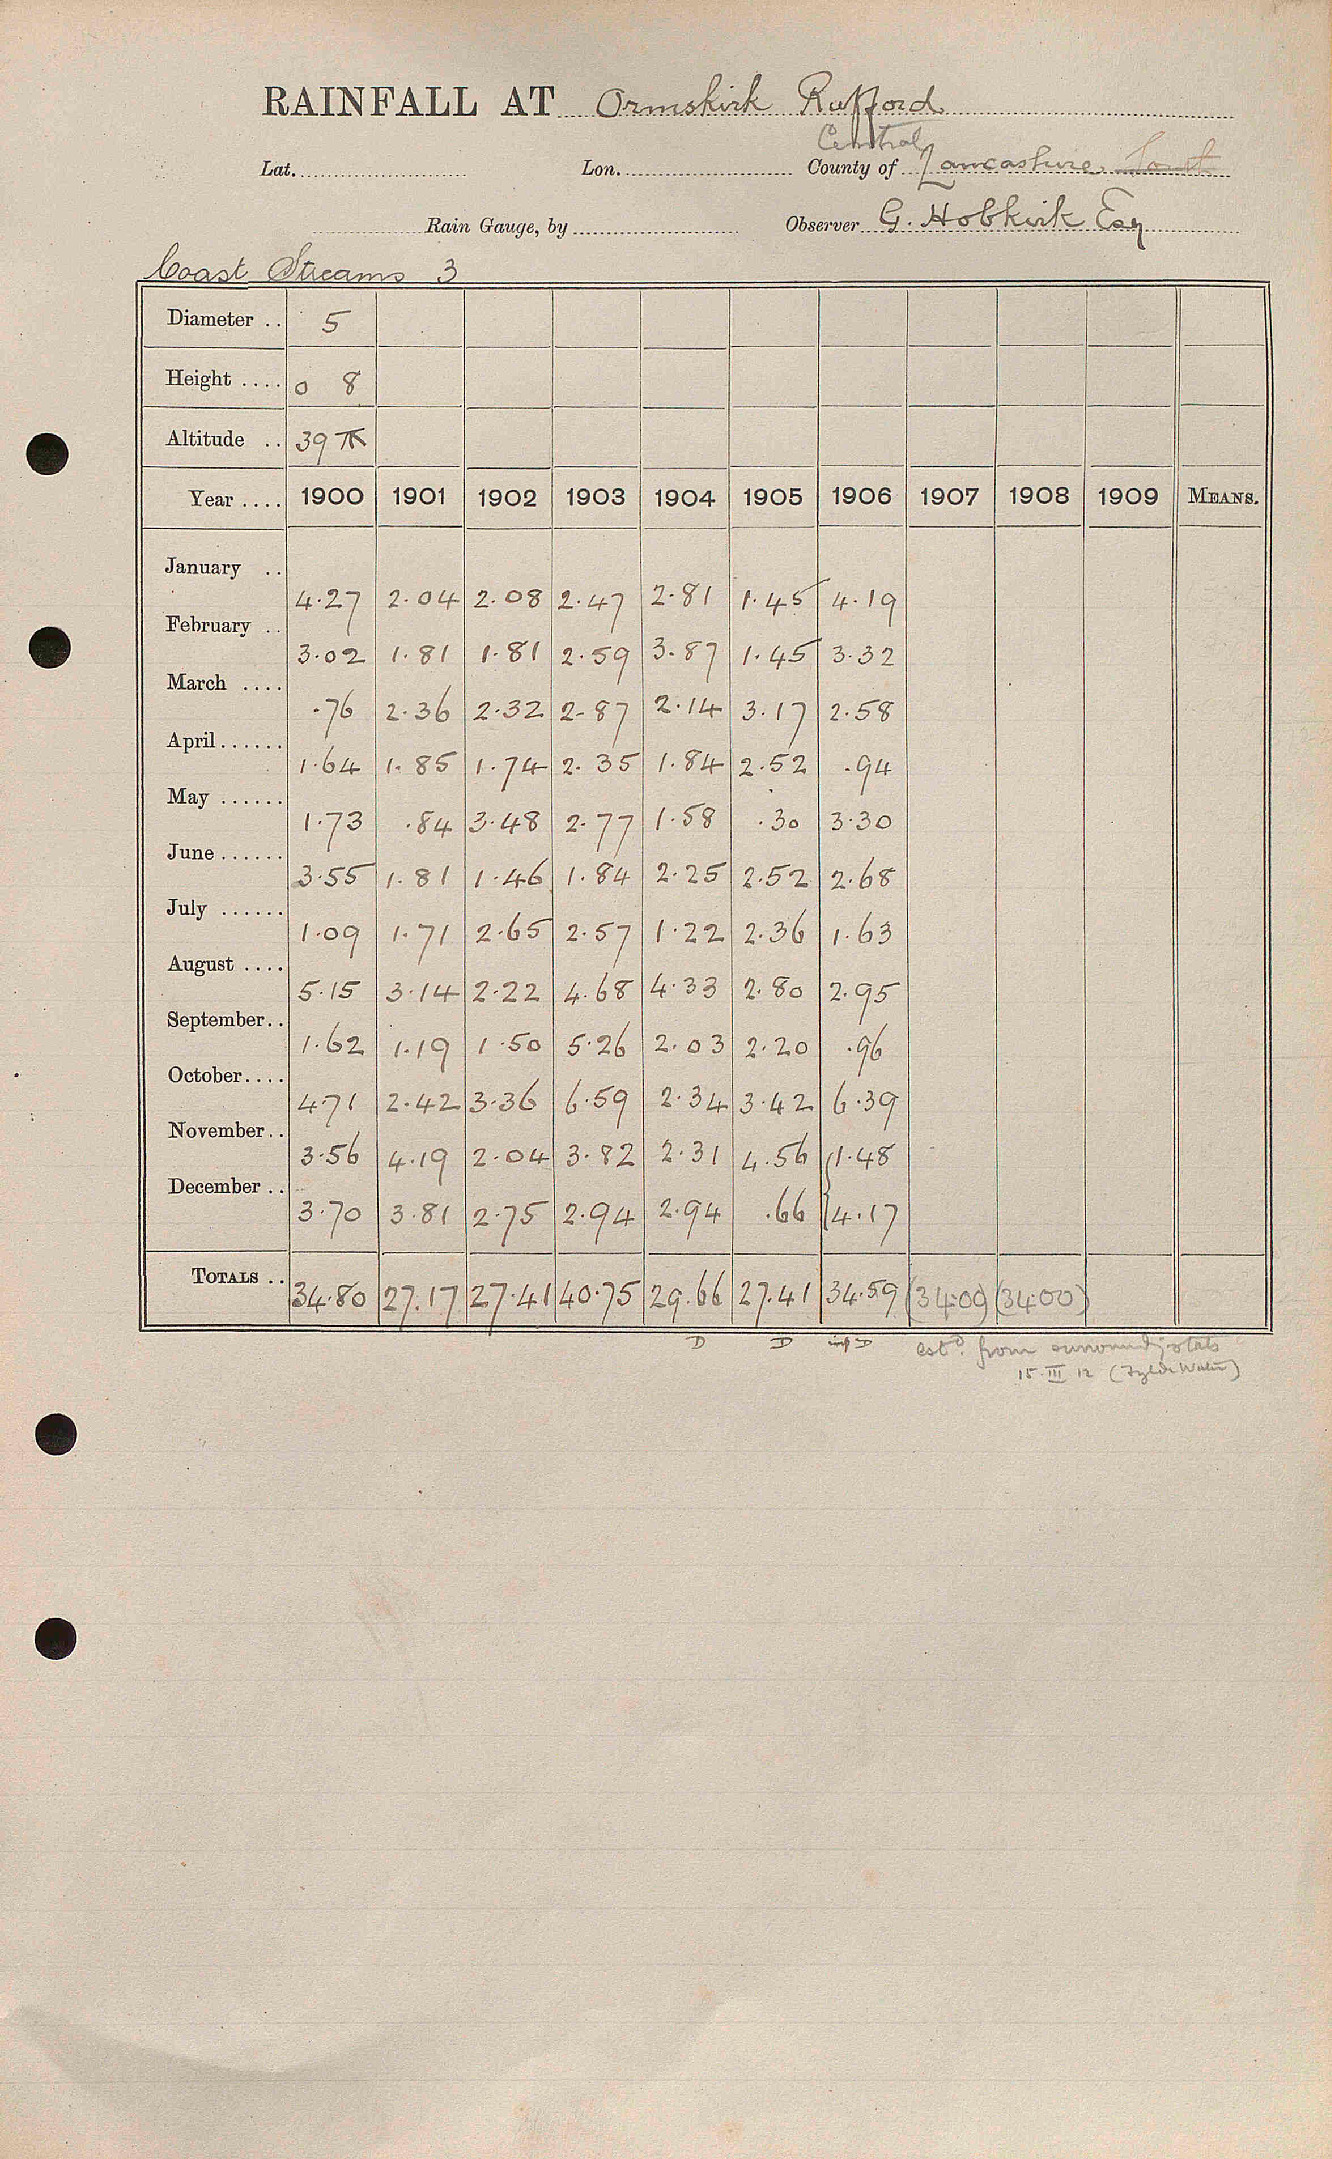 RAINFALL AT Ormskirk Rufford
Central
Lat. Lon. County of Lancashire
Rain Gauge, by Observer G. Hobkirk Esq
Coast Streams 3
Diameter .. 5
Height .... 0 8
Altitude .. 39
Year .... 1900 1901 1902 1903 1904 1905 1906 1907 1908 1909 MEANS.
January .. 4.27 2.04 2.08 2.47 2.81 1.45 4.19
February .. 3.02 1.81 1.81 2.59 3.87 1.45 3.32
March .... .76 2.36 2.32 2.87 2.14 3.17 2.58
April ...... 1.64 1.85 1.74 2.35 1.84 2.52 .94
May ...... 1.73 .84 3.48 2.77 1.58 .30 3.30
June ...... 3.55 1.81 1.46 1.84 2.25 2.52 2.68
July ...... 1.09 1.71 2.65 2.57 1.22 2.36 1.63
August .... 5.15 3.14 2.22 4.68 4.33 2.80 2.95
September .. 1.62 1.19 1.50 5.26 2.03 2.20 .96
October .... 4.71 2.42 3.36 6.59 2.34 3.42 6.39
November .. 3.56 4.19 2.04 3.82 2.31 4.56 1.48
December .. 3.70 3.81 2.75 2.94 2.94 .66 4.17
TOTALS .. 34.80 27.17 27.41 40.75 29.66 27.41 34.59 (34.00) (34.00)
D D imp D estd. from surroundg stats
15.III 12 (Fylde Water)